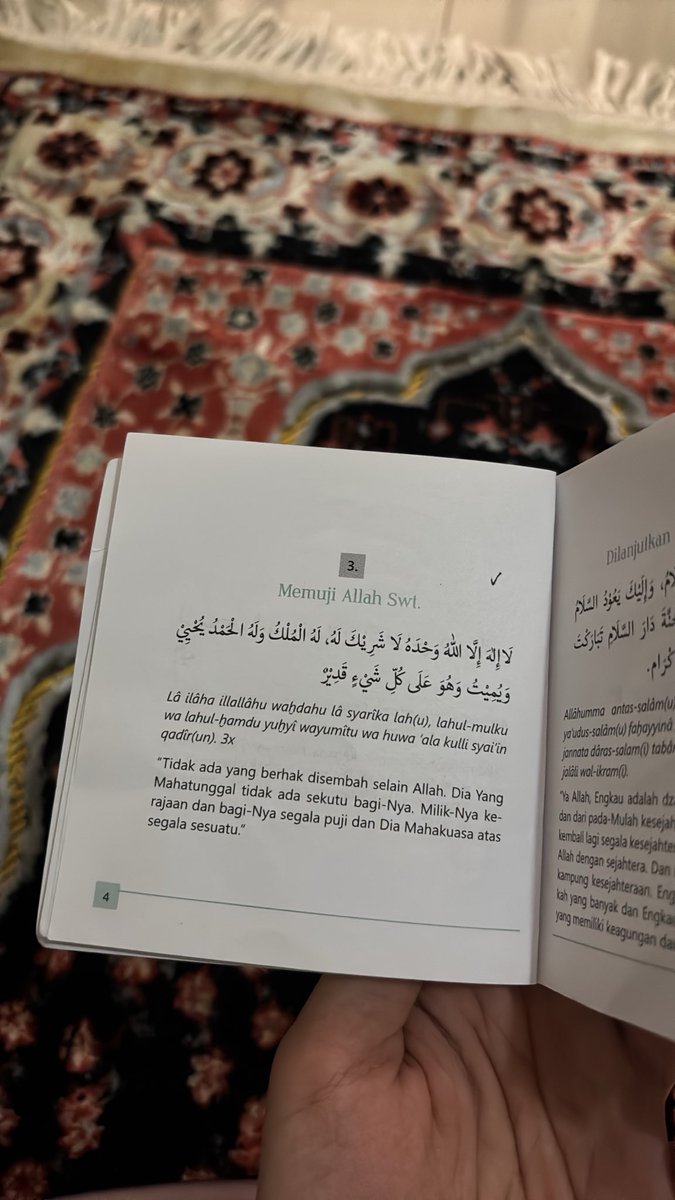 3.
Memuji Allah Swt.
✓
لَا إِلٰهَ إِلَّا اللّٰهُ وَحْدَهُ لَا شَرِيْكَ لَهُ، لَهُ الْمُلْكُ وَلَهُ الْحَمْدُ يُحْيِيْ
وَيُمِيْتُ وَهُوَ عَلَى كُلِّ شَيْءٍ قَدِيْرٌ
Lâ ilâha illallâhu waḫdahu lâ syarîka lah(u), lahul-mulku
wa lahul-ḫamdu yuḫyî wayumîtu wa huwa ‘ala kulli syai’in
qadîr(un). 3x
“Tidak ada yang berhak disembah selain Allah. Dia Yang
Mahatunggal tidak ada sekutu bagi-Nya. Milik-Nya ke-
rajaan dan bagi-Nya segala puji dan Dia Mahakuasa atas
segala sesuatu.”
4
Dilanjutkan
وَإِلَيْكَ يَعُوْدُ السَّلَامُ
دَارَ السَّلَامِ تَبَارَكْتَ
Allâhumma antas-salâm(u)
ya’udus-salâm(u) faḫayyinâ
jannata dâras-salam(i)
jalâli wal-ikram(i).
“Ya Allah, Engkau adalah
dan dari pada-Mulah
kembali lagi segala
Allah dengan sejahtera. Dan
kampung kesejahteraan.
kah yang banyak dan Engkau
yang memiliki keagungan